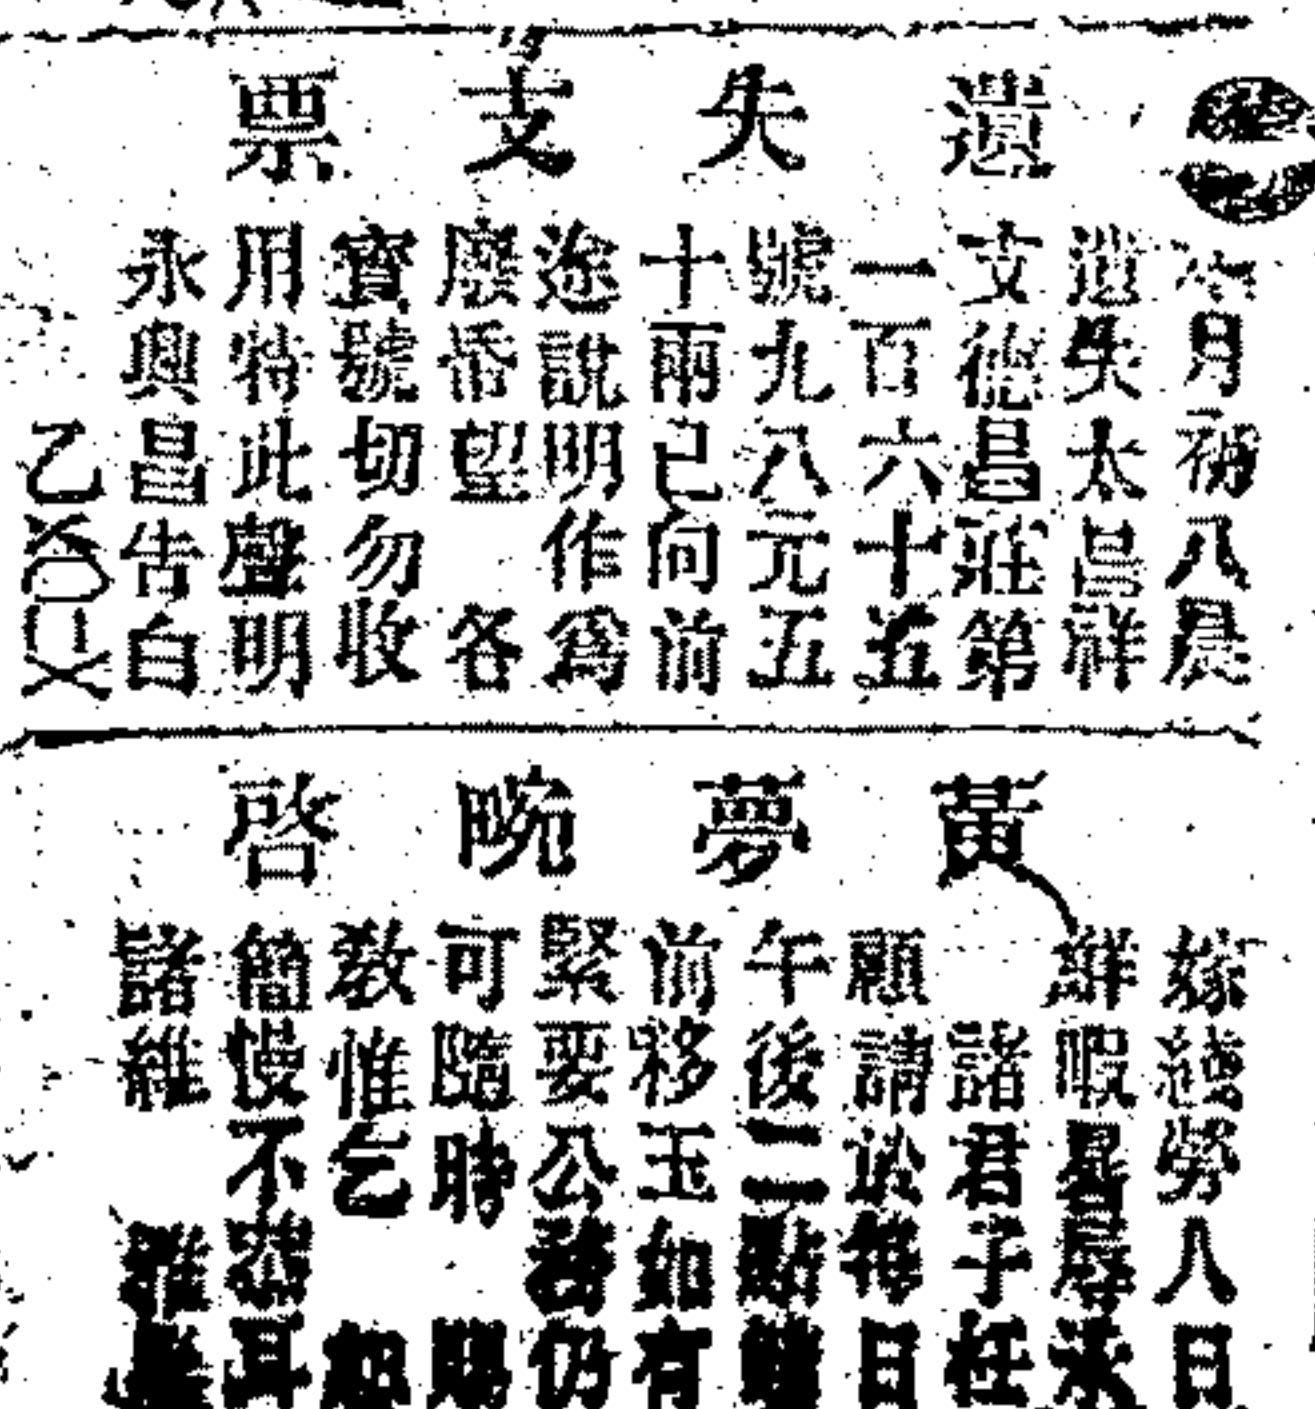 遺失支票
今月初八晨
遺失太昌祥
支德昌莊第
一百六十五
號九八元五
十兩已向前
途說明作爲
廢帋望 各
寶號切勿收
用特此聲明
永興昌告白
乙〤〇二〤
黃夢畹啓
嫁綫勞人日
鮮暇晷辱承
諸君子枉
顧請於每日
午後二點鐘
前移玉如有
緊要公務仍
可隨時 賜
敎惟乞恕
簡慢不恭耳
諸維 雅鑒